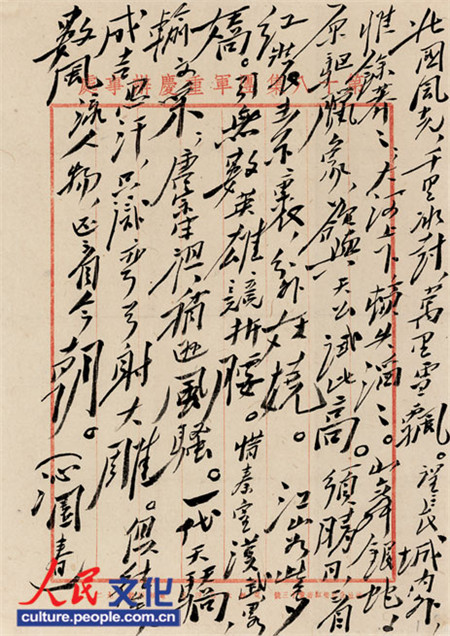 第十八集團軍重慶辦事處
北國風光,千里冰封,萬里雪飄。望長城内外
惟餘莽〻;大河上下,頓失滔〻。山舞銀蛇,
原馳臘象,欲與天公試比高。須晴日,看
紅裝素裹,分外妖嬈。江山如此多
嬌,引無數英雄競折腰。惜秦皇漢武,略
輸文采;唐宗宋祖,稍遜風騷。一代天驕,
成吉思汗,只識彎弓射大雕。俱往矣,
數風流人物,還看今朝。(沁園春
人民网 文化
culture.people.com.cn